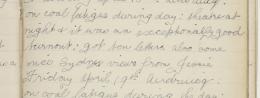 on coal fatigue during day: theatre at
night & it was an exceptionally good
turnout: got ten letters also some
nice Sydney views from Jessie
Friday April, 9th Aerdrweg:
on coal fatigue during the day: